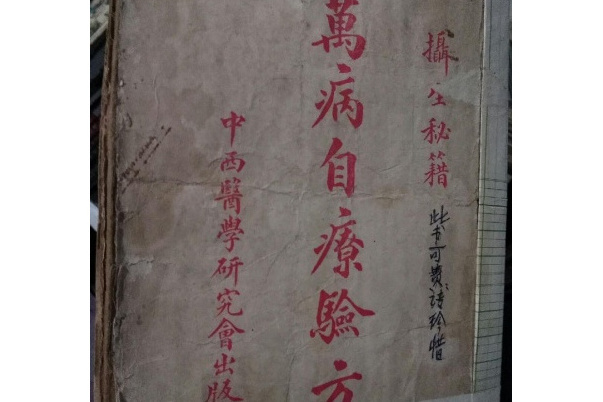 攝生秘籍
此書可貴請珍惜
萬病自療驗方
中西醫學研究會出版